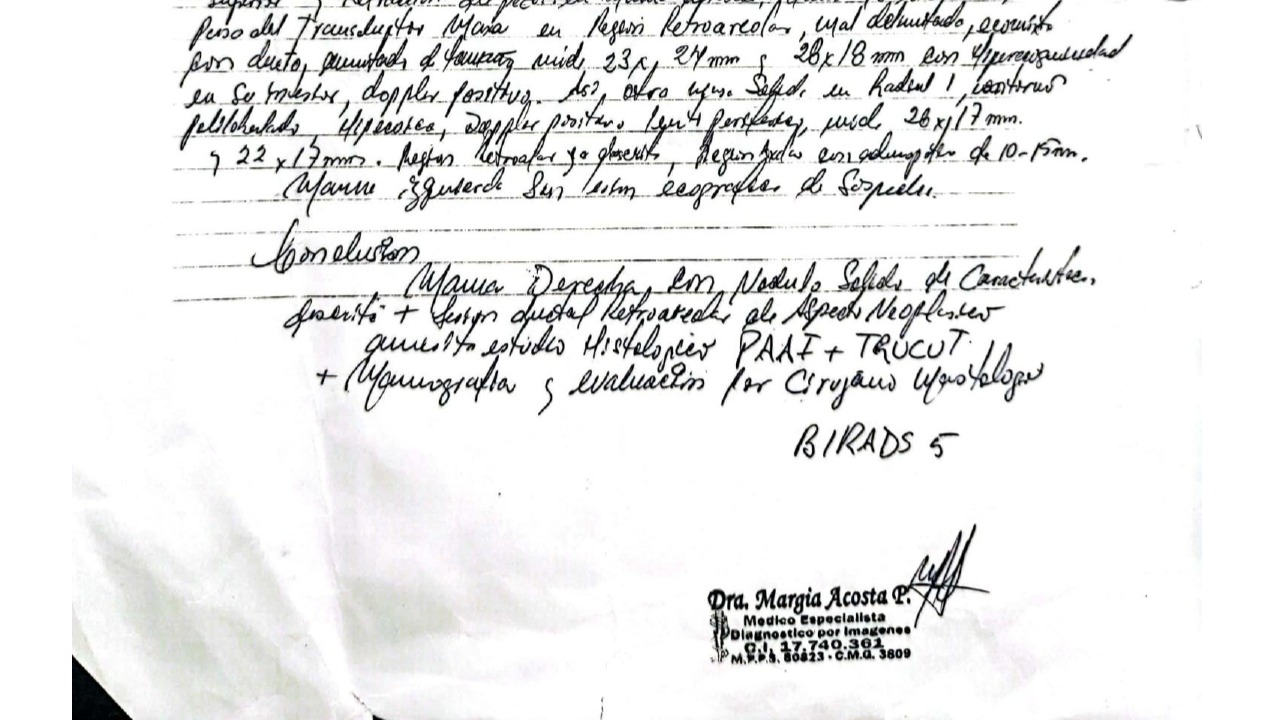 Peso del Transductor Mama en Region Retroareolar, mal delimitado,
con ducto, de mide 23 x 27 mm y 28 x 18 mm con
en su interior, doppler positivo. Asi, otra Solida en Radial 1, contornos
polilobulado, Hipoecoica, Doppler positivo mide 26 x 17 mm.
y 22 x 17 mm. Region Retroareolar ya descrita, Region con de 10-15mm.
Mama izquierda Sin ecograficas de Sospecha.
Conclusion
Mama Derecha con Nodulo Solido de Caracteristicas
descrito + lesion ductal Retroareolar de Aspecto Neoplasico
amerita estudio Histologico PAAF + TRUCUT
+ Mamografia y evaluacion por Cirujano Mastologo
BIRADS 5
Dra. Margia Acosta P.
Medico Especialista
Diagnostico por Imagenes
C.I. 17.740.361
M.P.P.S. 80823 - C.M.G. 3809